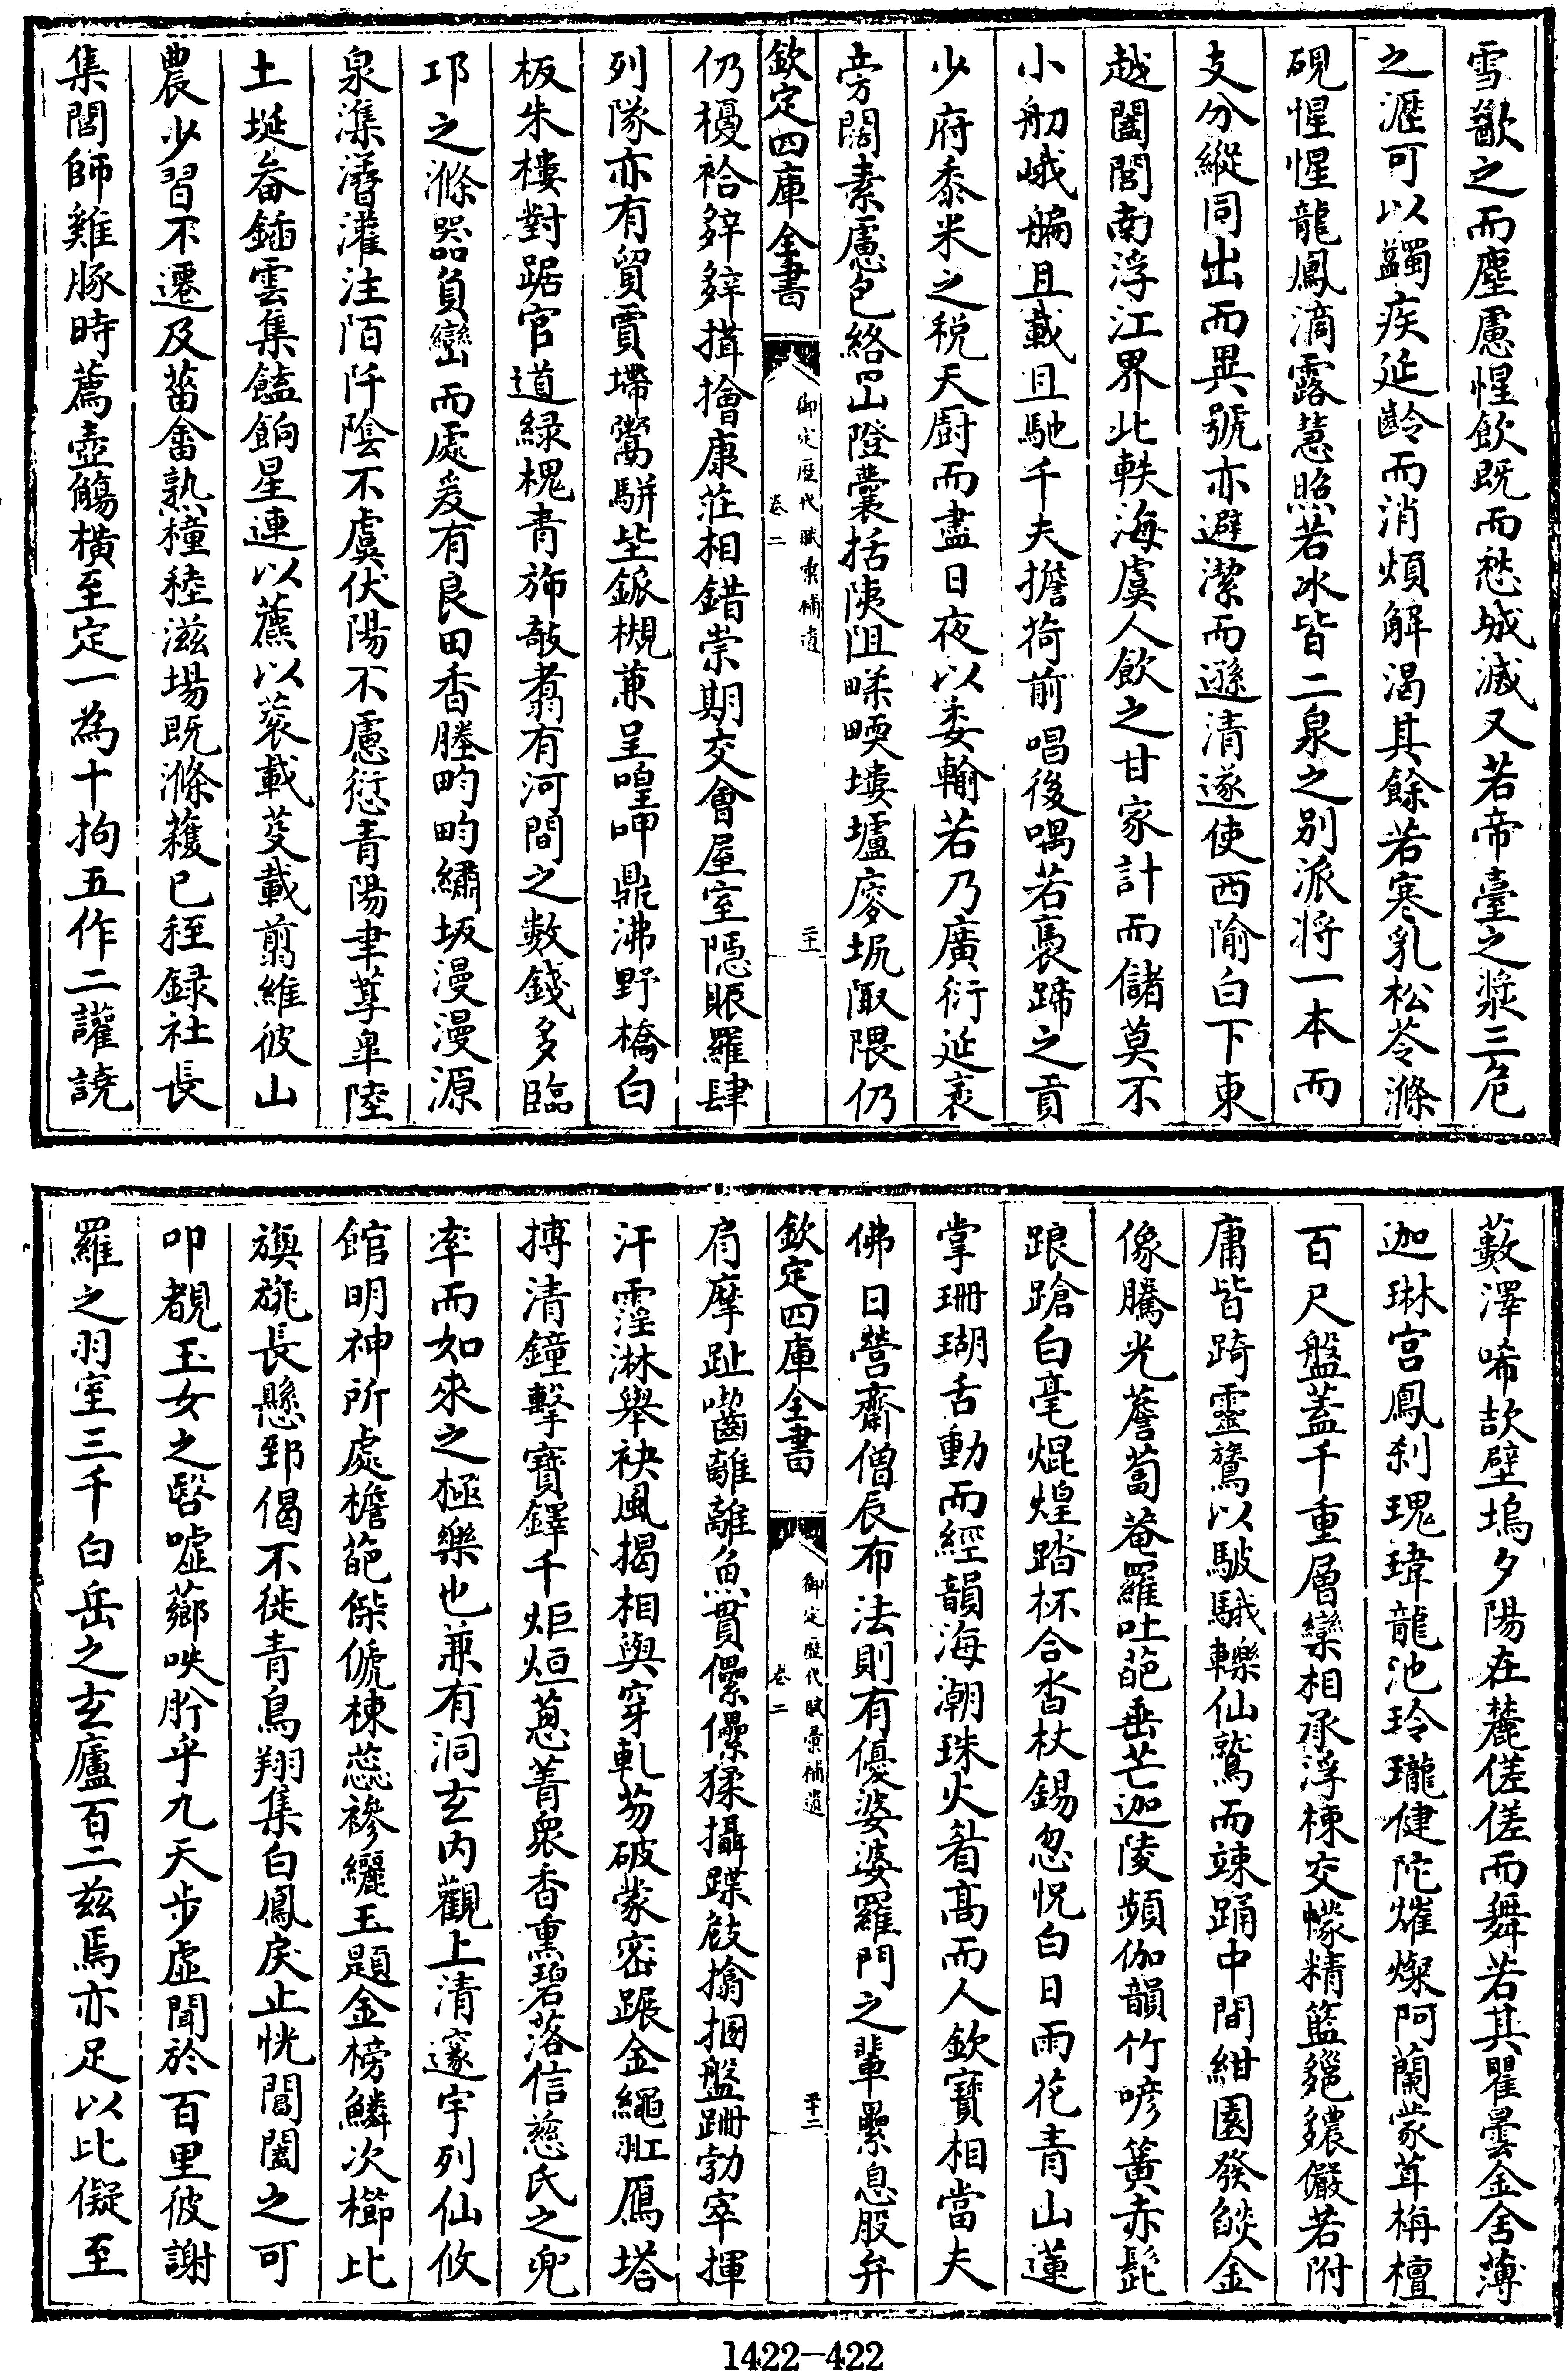 雪歠之而塵慮惺飲既而愁城滅又若帝臺之漿三危
之瀝可以蠲疾延齡而消煩解渴其餘若寒乳松苓滌
硯惺惺龍鳳滴露慧照若冰皆二泉之别派將一本而
支分縱同出而異號亦避潔而遜清遂使西隃白下東
越闔閭南浮江界北軼海虞人飲之甘家計而儲莫不
小舠峨艑且載且馳千夫擔荷前唱後喁若褭蹄之貢
少府黍米之税天厨而盡日夜以委輸若乃廣衍延袤
旁闊素慮包絡罡隥囊括陦阻㽥畽塿壚㝫坭陬隈仍
欽定四庫全書
御定歴代賦彙補遺
卷二
二十一
仍櫌袷辤辤揩擔康莊相錯崇期交會屋室隱賑羅肆
列隊亦有貿賈墆鬻駢坒鈲槻兼呈喤呷鼎沸野橋白
板朱樓對踞官道緑槐青斾敲翥有河間之數錢多臨
邛之滌器負巒而處爰有良田香塍畇畇繡坂漫漫源
泉潗㵫灌注陌阡陰不虞伏陽不慮愆青陽聿蓴皐陸
土埏畚鍤雲集饁餉星連以藨以蓘載芟載翦維彼山
農少習不遷及菑畬熟穜稑滋場既滌穫已秷録社長
集閭師雞豚時薦壺觴横至定一為十拘五作二讙譊
藪澤唏㰤壁塢夕陽在麓傞傞而舞若其瞿曇金舍薄
迦琳宫鳳刹瑰瑋龍池玲瓏健陀熣燦阿蘭蒙茸栴檀
百尺盤蓋千重層欒相承浮棟交幪精籃㲋䝉儼若附
庸皆踦靈鷲以駊騀轢仙鷲而竦踊中間紺園發燄金
像騰光薝蔔菴羅吐葩垂芒迦陵頻伽韻竹喭簧赤髭
踉蹌白毫焜煌踏杯合沓杖錫忽怳白日雨花青山蓮
掌珊瑚舌動而經韻海潮珠火㸔髙而人欽寶相當夫
佛日營齋僧辰布法則有優婆婆羅門之輩纍息股弁
欽定四庫全書
御定歴代賦彙補遺
卷二
二十二
肩摩趾囓離離魚貫儽儽猱攝蹀敊擒捆盤跚勃窣揮
汗霪淋舉袂風揭相與穿軋芴破蒙密蹍金繩躡鴈塔
搏清鐘擊寶鐸千炬烜蒽菁衆香熏碧落信慈氏之兜
率而如來之極樂也兼有洞玄内觀上清邃宇列仙攸
館明神所處檐葩傑俿棟蕊襂纚玉題金榜鱗次櫛比
旟旐長懸郅偈不徙青鳥翔集白鳳戾止恍閶闔之可
叩覩玉女之㗨噓薌呹肸乎九天步虚聞於百里彼謝
羅之羽室三千白岳之玄廬百二兹焉亦足以比儗至
1422—422